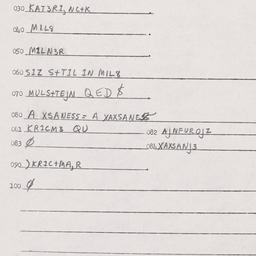 030 KAT3RI,NC+K
040 MIL8
050 MILN3R
060 SIZ S+TIL IN MIL8
070 MULS+EJN QED $
080 A XSANESS = A XAXSANESS
081 KRICM3 QU 082 AJNFUROJZ
083 Ø 084 XAXSANJ3
090 )KRIC+MA,R
100 Ø